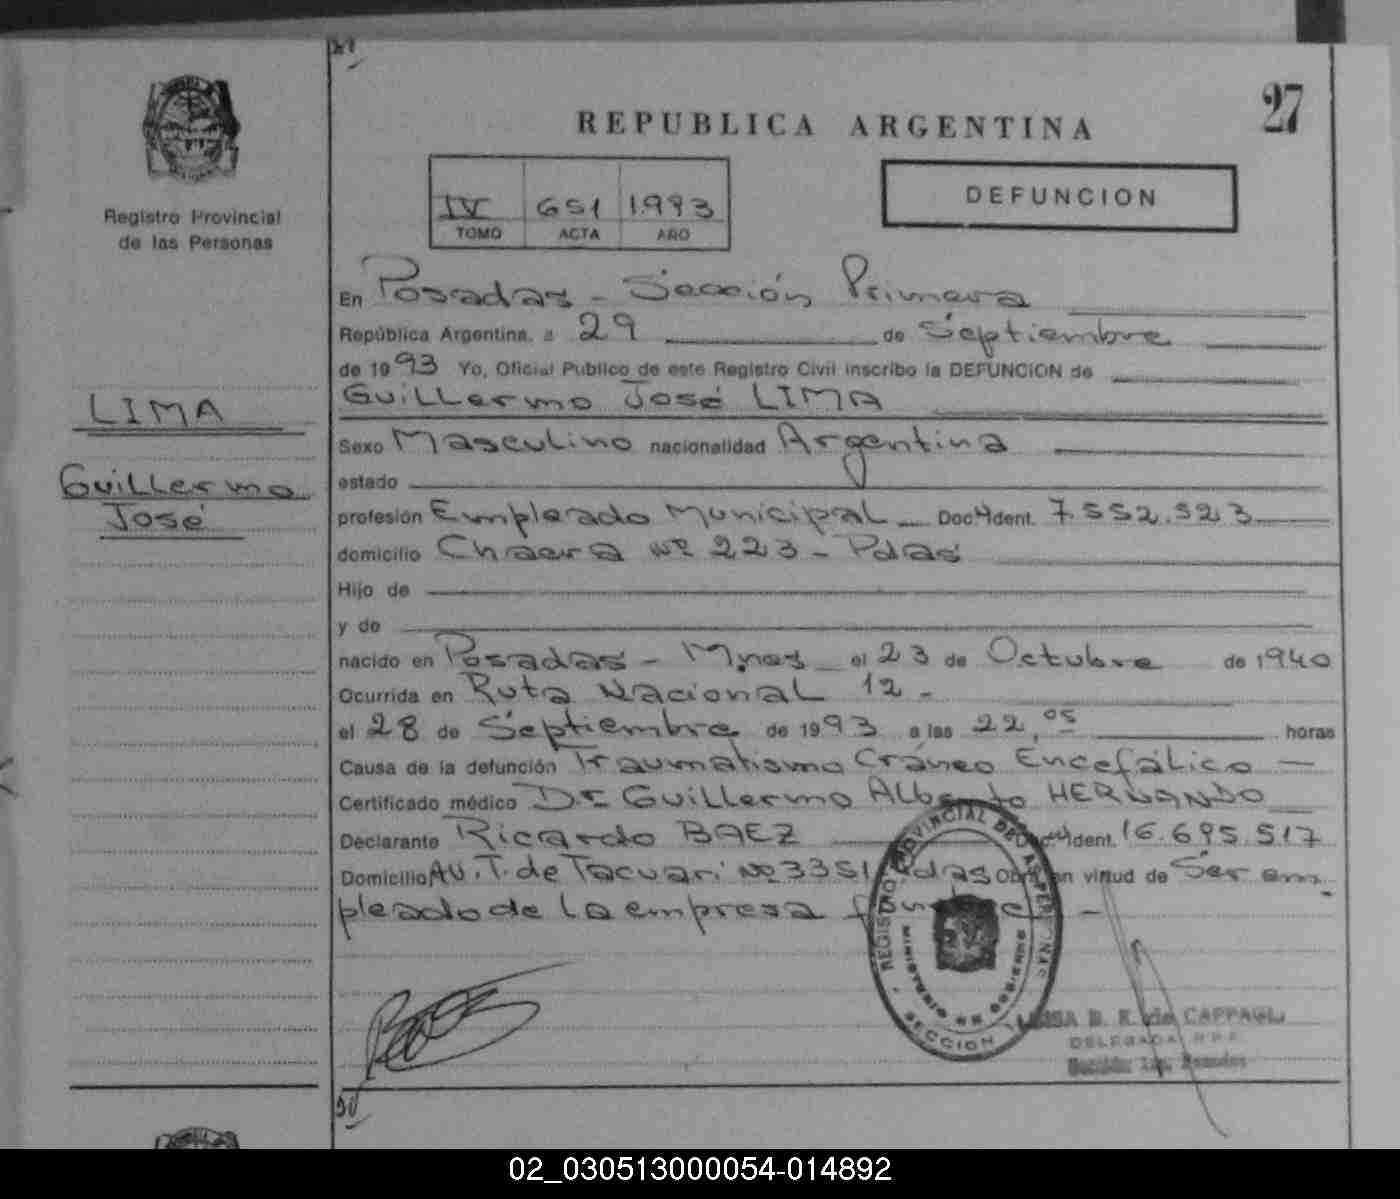 27
REPUBLICA ARGENTINA
DEFUNCION
IV 651 1.993
TOMO ACTA AÑO
Registro Provincial
de las Personas
LIMA
Guillermo
José
En Posadas - Sección Primera
República Argentina, a 29 de Septiembre
de 1993 Yo, Oficial Publico de este Registro Civil inscribo la DEFUNCION de
Guillermo José LIMA
Sexo Masculino nacionalidad Argentina
estado
profesión Empleado Municipal Doc. Ident. 7.552.523
domicilio Chacra Nº 223 - Pdas
Hijo de
y de
nacido en Posadas - Mnes el 23 de Octubre de 1940
Ocurrida en Ruta Nacional 12 -
el 28 de Septiembre de 1993 a las 22,05 horas
Causa de la defunción Traumatismo Cráneo Encefálico
Certificado médico Dr. Guillermo Alberto HERNANDO
Declarante Ricardo BAEZ Ident. 16.695.517
Domicilio Av. T. de Tacuari Nº 3351 Pdas Obra en virtud de Ser em-
pleado de la empresa
REGISTRO PROVINCIAL DE LAS PERSONAS
MINISTERIO DE GOBIERNO
SECCION
B. R. de CAPPAGLI
DELEGADA R.P.P.
02_030513000054-014892